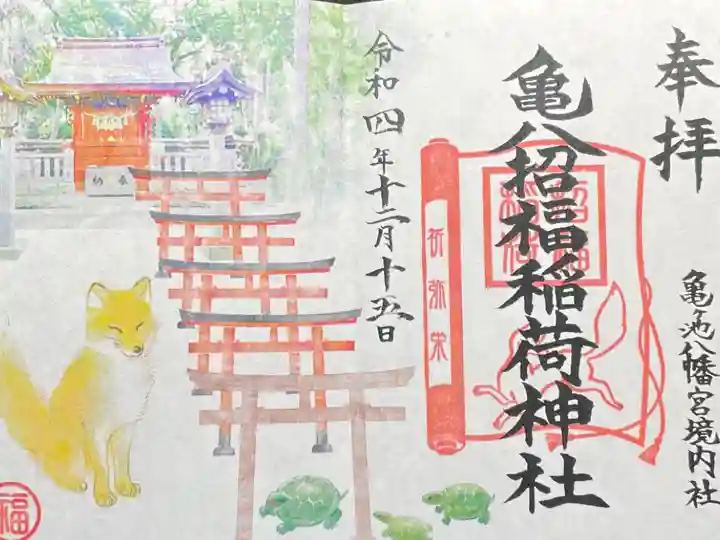 奉拝
亀ヶ池八幡宮境内社
亀八招福稲荷神社
招福
稲荷
祈弥栄
令和四年十二月十五日
奉納
福